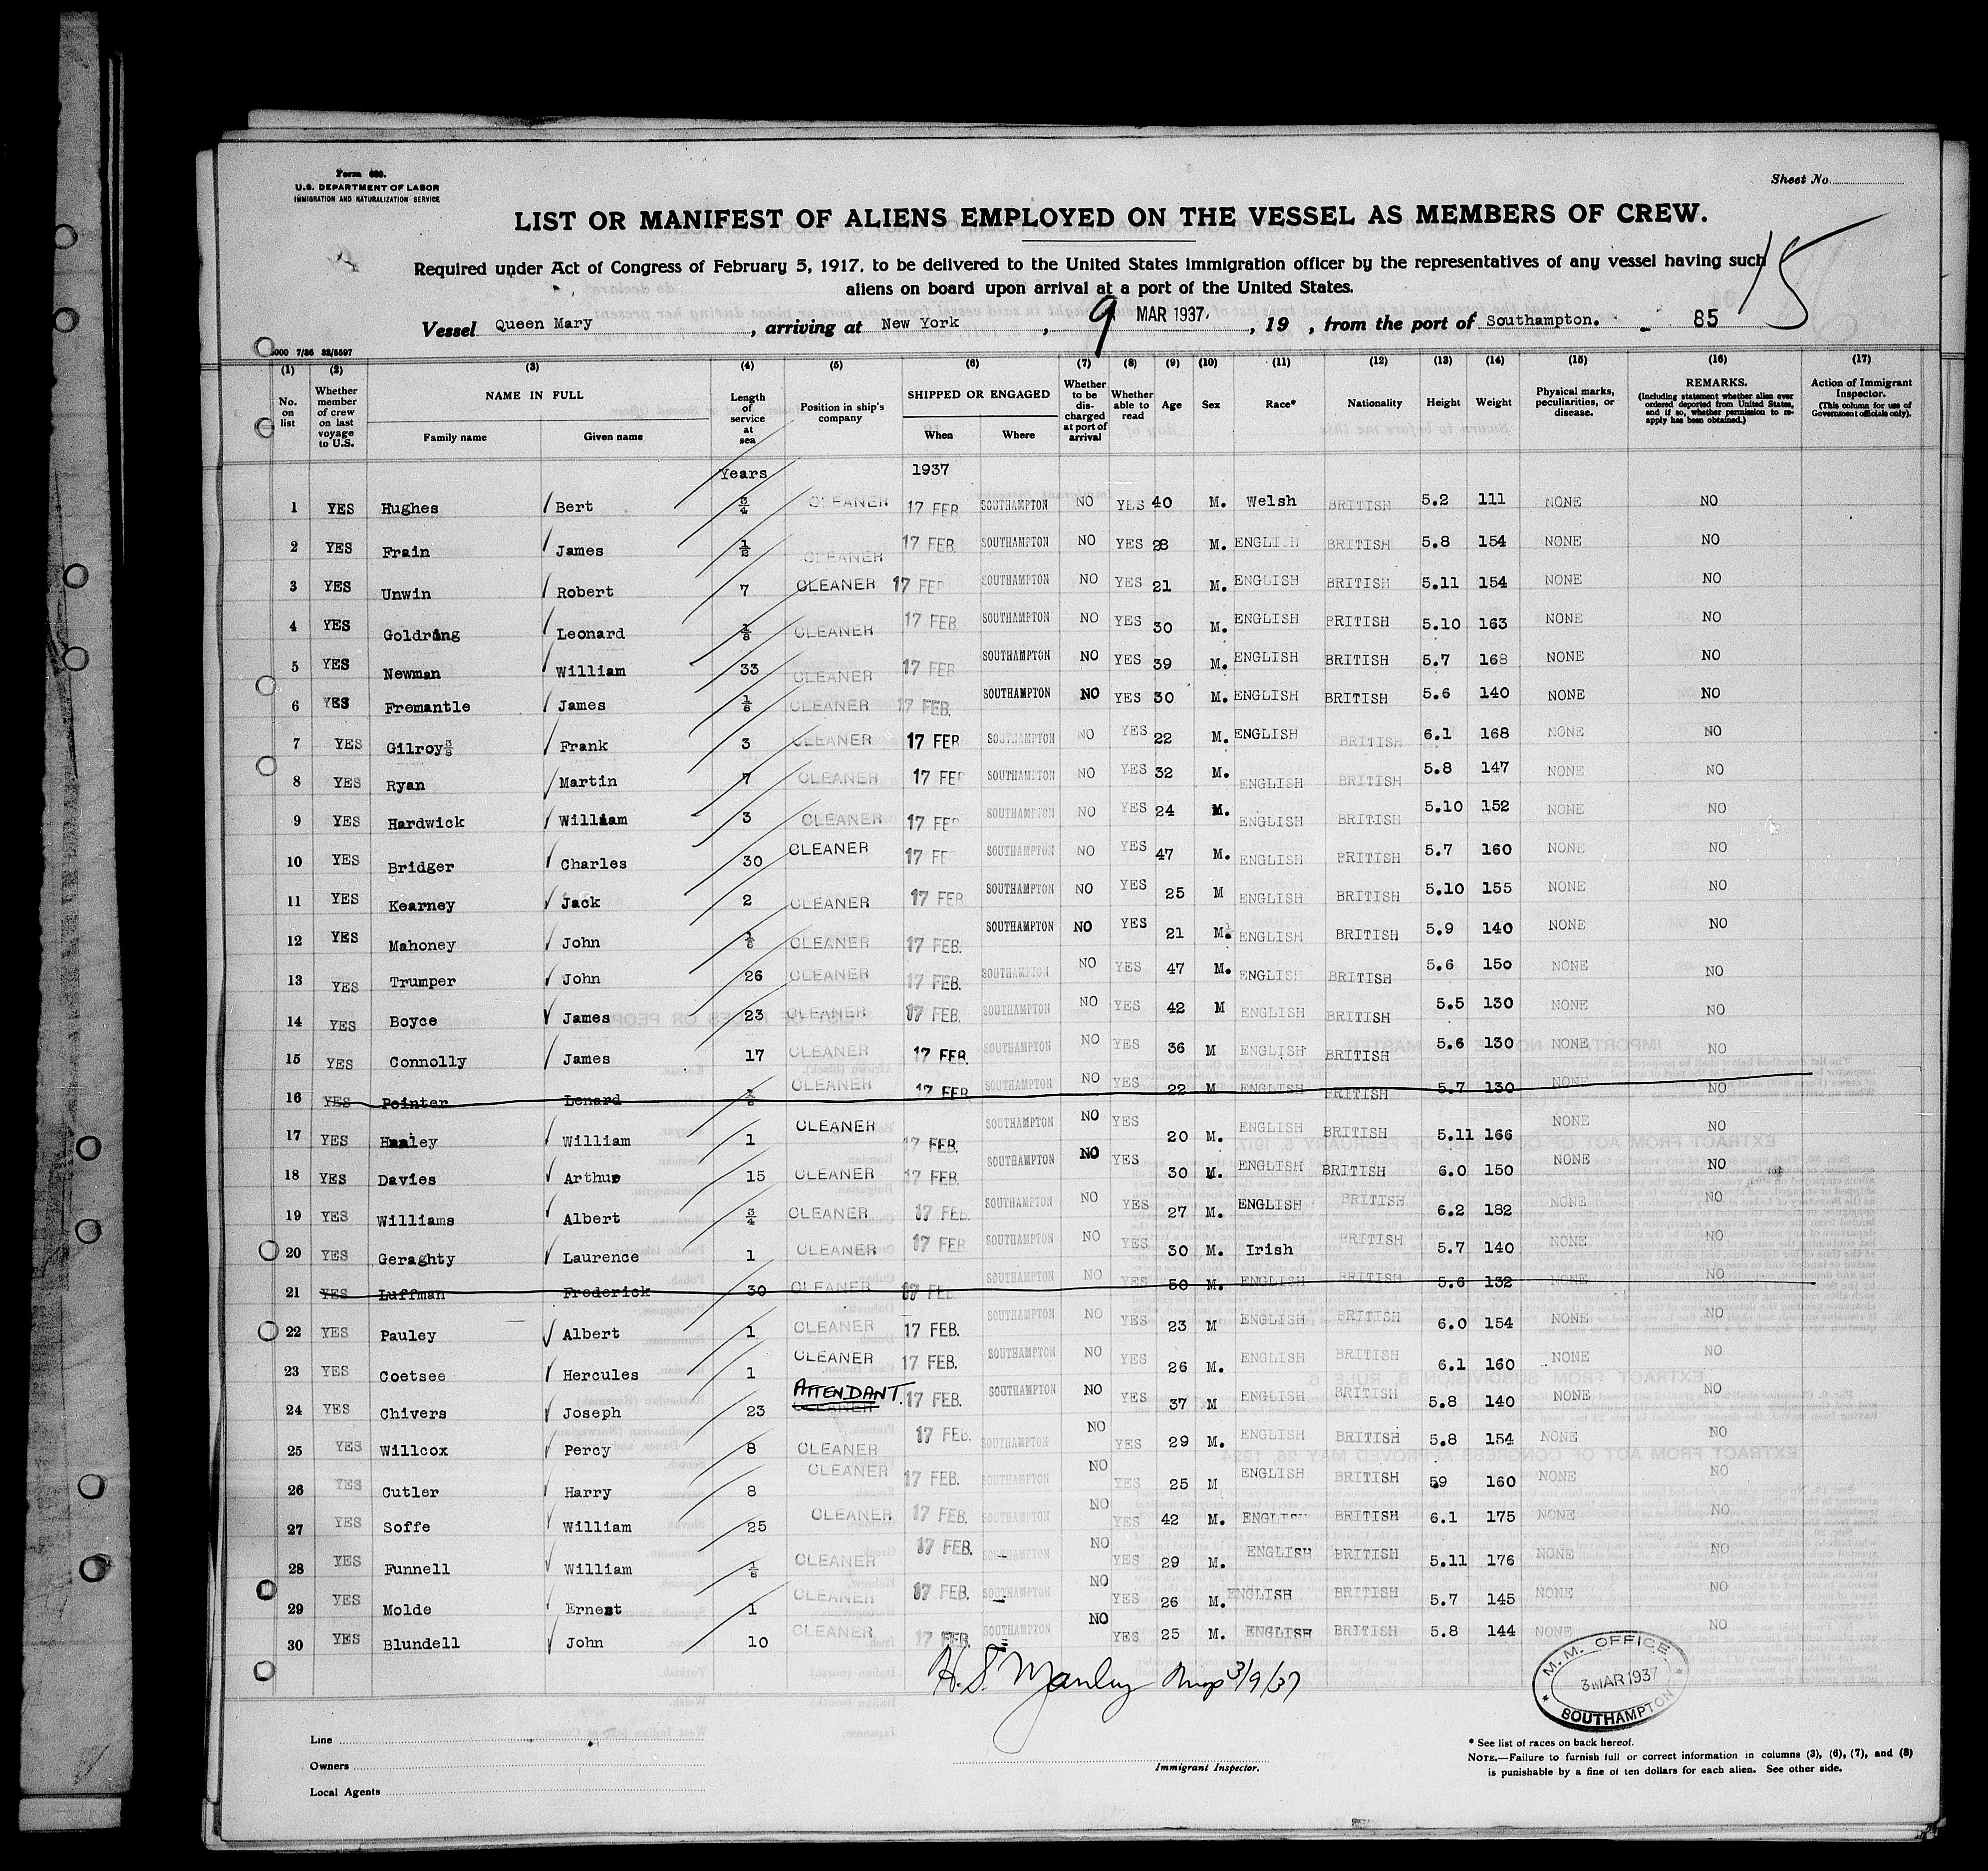 Form 680.
U.S. DEPARTMENT OF LABOR
IMMIGRATION AND NATURALIZATION SERVICE
Sheet No.
LIST OR MANIFEST OF ALIENS EMPLOYED ON THE VESSEL AS MEMBERS OF CREW.
15
Required under Act of Congress of February 5, 1917, to be delivered to the United States immigration officer by the representatives of any vessel having such
aliens on board upon arrival at a port of the United States.
Vessel Queen Mary, arriving at New York, 9 MAR 1937, 19 , from the port of Southampton. - 85
000 7/36 32/5597
(1) (2) (3) (4) (5) (6) (7) (8) (9) (10) (11) (12) (13) (14) (15) (16) (17)
No. on list Whether member of crew on last voyage to U.S. NAME IN FULL Family name Given name Length of service at sea Position in ship's company SHIPPED OR ENGAGED When Where Whether to be discharged at port of arrival Whether able to read Age Sex Race* Nationality Height Weight Physical marks, peculiarities, or disease. REMARKS. (Including statement whether alien ever ordered deported from United States, and if so, whether permission to re-apply has been obtained.) Action of Immigrant Inspector. (This column for use of Government officials only).
Years 1937
1 YES Hughes Bert 3/4 CLEANER 17 FEB SOUTHAMPTON NO YES 40 M. Welsh BRITISH 5.2 111 NONE NO
2 YES Frain James CLEANER 17 FEB. SOUTHAMPTON NO YES 28 M. ENGLISH BRITISH 5.8 154 NONE NO
3 YES Unwin Robert 7 CLEANER 17 FEB SOUTHAMPTON NO YES 21 M. ENGLISH BRITISH 5.11 154 NONE NO
4 YES Goldring Leonard CLEANER 17 FEB. SOUTHAMPTON NO YES 30 M. ENGLISH BRITISH 5.10 163 NONE NO
5 YES Newman William 33 CLEANER 17 FEB SOUTHAMPTON NO YES 39 M. ENGLISH BRITISH 5.7 168 NONE NO
6 YES Fremantle James CLEANER 17 FEB. SOUTHAMPTON NO YES 30 M. ENGLISH BRITISH 5.6 140 NONE NO
7 YES Gilroy Frank 3 CLEANER 17 FEB SOUTHAMPTON NO YES 22 M. ENGLISH BRITISH 6.1 168 NONE NO
8 YES Ryan Martin 7 CLEANER 17 FEB SOUTHAMPTON NO YES 32 M. ENGLISH BRITISH 5.8 147 NONE NO
9 YES Hardwick William 3 CLEANER 17 FEB SOUTHAMPTON NO YES 24 M. ENGLISH BRITISH 5.10 152 NONE NO
10 YES Bridger Charles 30 CLEANER 17 FEB SOUTHAMPTON NO YES 47 M. ENGLISH BRITISH 5.7 160 NONE NO
11 YES Kearney Jack 2 CLEANER 17 FEB SOUTHAMPTON NO YES 25 M ENGLISH BRITISH 5.10 155 NONE NO
12 YES Mahoney John CLEANER 17 FEB. SOUTHAMPTON NO YES 21 M. ENGLISH BRITISH 5.9 140 NONE NO
13 YES Trumper John 26 CLEANER 17 FEB. SOUTHAMPTON NO YES 47 M. ENGLISH BRITISH 5.6 150 NONE NO
14 YES Boyce James 23 CLEANER 17 FEB. SOUTHAMPTON NO YES 42 M ENGLISH BRITISH 5.5 130 NONE NO
15 YES Connolly James 17 CLEANER 17 FEB. SOUTHAMPTON NO YES 36 M ENGLISH BRITISH 5.6 130 NONE NO
16 YES Pointer Lenard CLEANER 17 FEB. SOUTHAMPTON NO YES 22 M ENGLISH BRITISH 5.7 130 NONE NO
17 YES William 1 CLEANER 17 FEB. SOUTHAMPTON NO YES 20 M. ENGLISH BRITISH 5.11 166 NONE NO
18 YES Davies Arthur 15 CLEANER 17 FEB. SOUTHAMPTON NO YES 30 M. ENGLISH BRITISH 6.0 150 NONE NO
19 YES Williams Albert 3/4 CLEANER 17 FEB. SOUTHAMPTON NO YES 27 M. ENGLISH BRITISH 6.2 182 NONE NO
20 YES Geraghty Laurence 1 CLEANER 17 FEB SOUTHAMPTON NO YES 30 M. Irish BRITISH 5.7 140 NONE NO
21 YES Luffman Frederick 30 CLEANER 17 FEB. SOUTHAMPTON NO YES 50 M. ENGLISH BRITISH 5.6 132 NONE NO
22 YES Pauley Albert 1 CLEANER 17 FEB. SOUTHAMPTON NO YES 23 M ENGLISH BRITISH 6.0 154 NONE NO
23 YES Coetsee Hercules 1 CLEANER 17 FEB. SOUTHAMPTON NO YES 26 M. ENGLISH BRITISH 6.1 160 NONE NO
24 YES Chivers Joseph 23 ATTENDANT. CLEANER 17 FEB. SOUTHAMPTON NO YES 37 M ENGLISH BRITISH 5.8 140 NONE NO
25 YES Willcox Percy 8 CLEANER 17 FEB. SOUTHAMPTON NO YES 29 M. ENGLISH BRITISH 5.8 154 NONE NO
26 YES Cutler Harry 8 CLEANER 17 FEB. SOUTHAMPTON NO YES 25 M ENGLISH BRITISH 59 160 NONE NO
27 YES Soffe William 25 CLEANER 17 FEB. SOUTHAMPTON NO YES 42 M. ENGLISH BRITISH 6.1 175 NONE NO
28 YES Funnell William CLEANER 17 FEB. SOUTHAMPTON NO YES 29 M. ENGLISH BRITISH 5.11 176 NONE NO
29 YES Molde Ernest 1 CLEANER 17 FEB. SOUTHAMPTON NO YES 26 M. ENGLISH BRITISH 5.7 145 NONE NO
30 YES Blundell John 10 CLEANER 17 FEB. SOUTHAMPTON NO YES 25 M. ENGLISH BRITISH 5.8 144 NONE NO
H. S. Manley Insp 3/9/37
M. M. OFFICE
3 MAR 1937
SOUTHAMPTON
Line
Owners
Local Agents
Immigrant Inspector.
* See list of races on back hereof.
NOTE.—Failure to furnish full or correct information in columns (3), (6), (7), and (8)
is punishable by a fine of ten dollars for each alien. See other side.